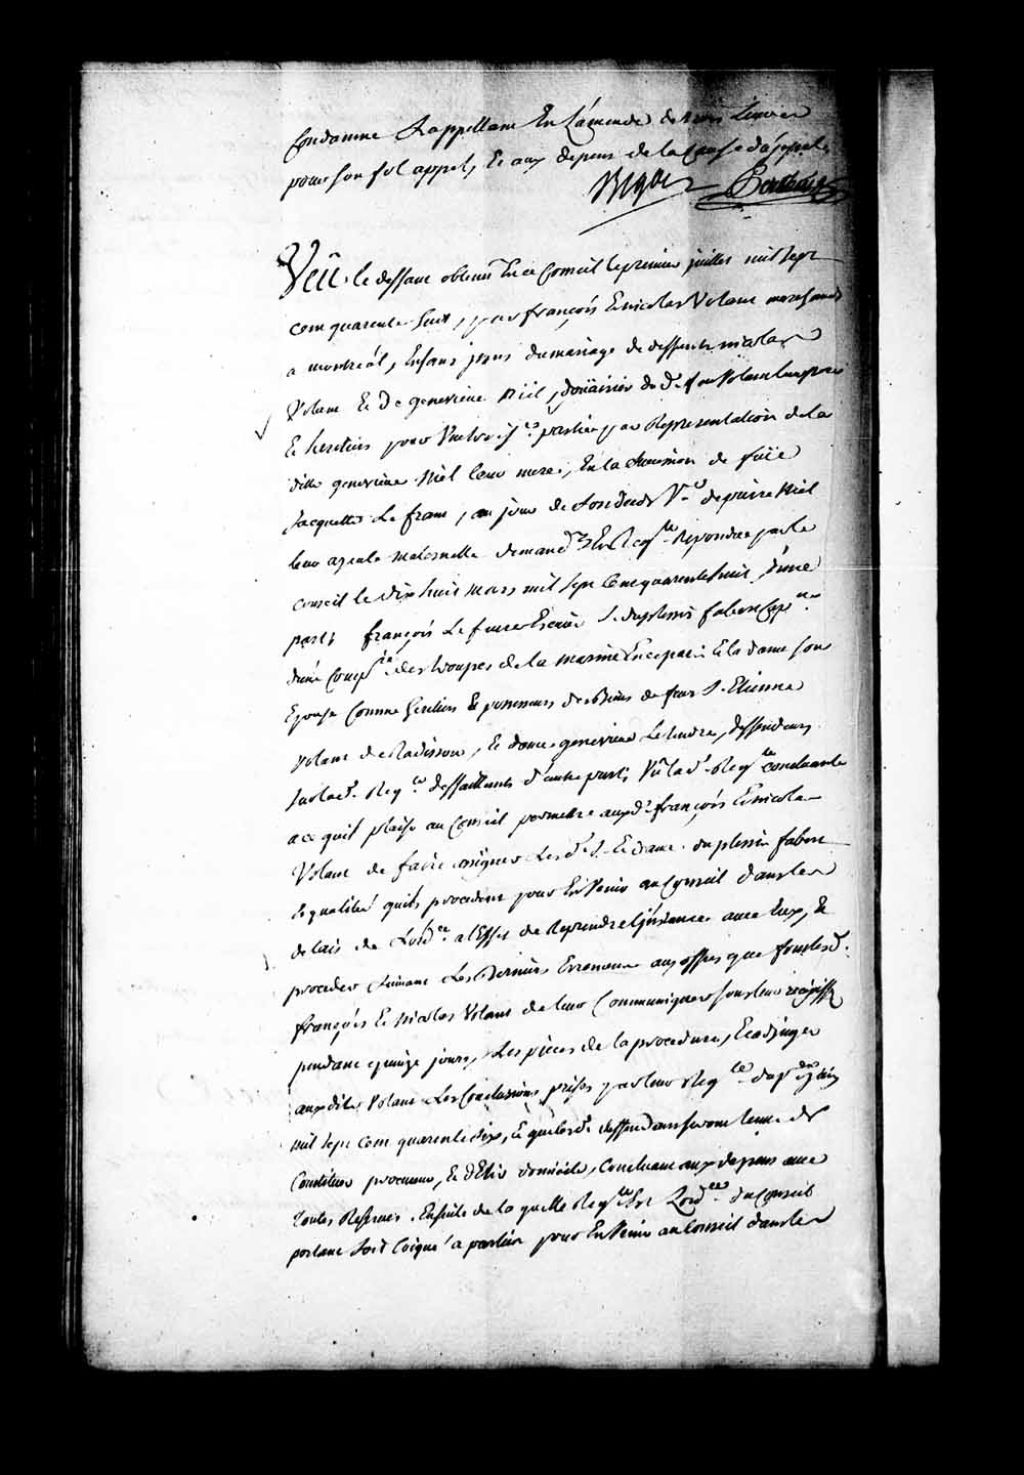 Condamne Lappellant En L'amende de trois Livres
pour son fol appel, Et aux depens de la Cause d'appel
Bigot
Veü le deffaut obtenu En ce Conseil le premier juillet mil sept
cent quarente huit, par françois Et nicolas Volant marchands
a montréal, Enfans issus du mariage de deffunts nicolas
Volant Et De genevieve Niel, douairiere du d. feu Volant
Et heritiers pour partie par Representation de la
ditte genevieve Niel leur mere, En la succession de
Jacquette Le franc, au jour de Son deceds Ve. de pierre Niel
leur ayeule maternelle demandrs En Reqte. Repondue par le
conseil le dix huit mars mil sept Cent quarente huit, d'une
part; françois Le febvre Ecuier S. duplessis fabert Capne.
d'une Compie. des troupes de la marine En ce païs Et la dame son
Epouse Comme heritiers Et possesseurs des Biens de feus S. Etienne
volant de Radisson, Et dame genevieve Le tendre, deffendeurs
sur lad. Reqte. deffaillants d'autre part; Vû lad. Reqte. concluante
a ce quil plaise au Conseil permettre auxd. françois Et nicolas
Volant de faire assigner Lesd. S. Et dame duplessis fabert
Es qualités quils procedent pour En Venir au Conseil dans les
delais de Lordce. a l'Effet de Reprendre L'jnstance avec Eux, Et
proceder suivant Les Derniers Erremens aux offres que font lesd.
françois Et Nicolas Volant de leur Communiquer sous leur recepissé
pendant quinze jours, Les pieces de la procedure, Et adjuger
auxdits Volant Les Conclusions prises par leur Reqte. du
mil sept cent quarente six, Et que lesd. deffendeurs seront tenus de
Constituer procureur, Et d'Elire domicile, Concluant aux depens avec
toutes Reserves. Ensuite de la quelle Reqte. Est Lordce. du Conseil
portant Soit Coiqué a parties pour En Venir au Conseil dans les